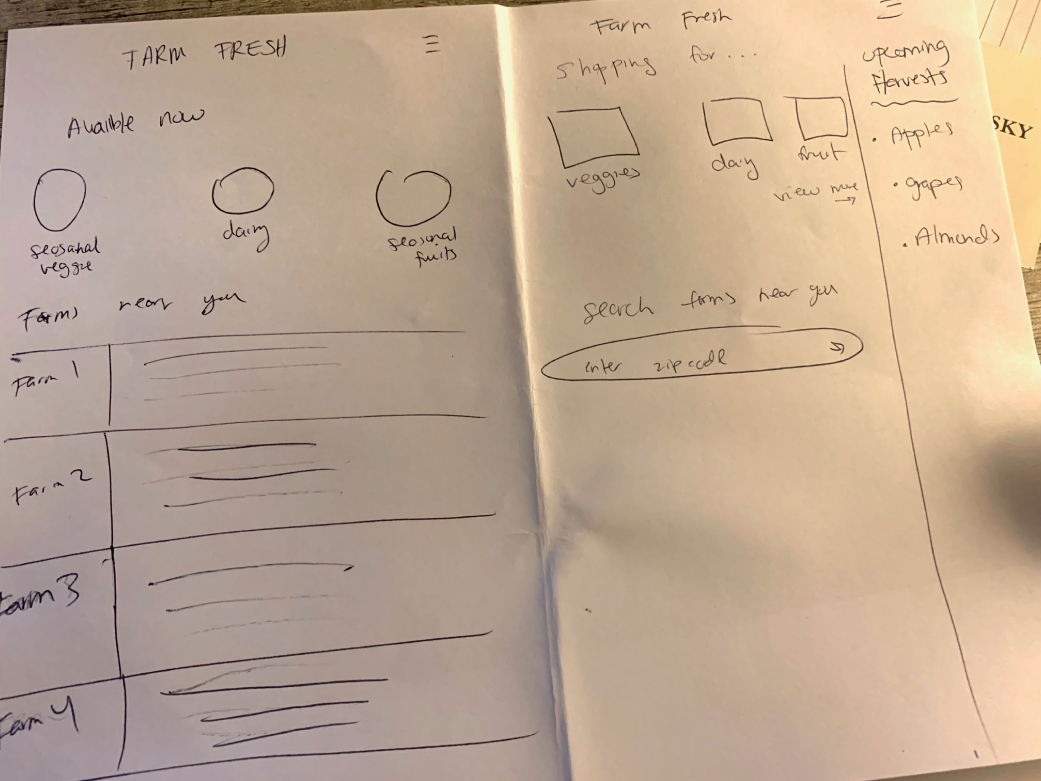 FARM FRESH
Availble now
seosanal
veggie
dairy
seosinal
fruits
Farms near you
Farm 1
Farm 2
Farm 3
Farm 4
Farm Fresh
Shopping for...
veggies
daiy
fruit
view more
→
search farms near you
enter zipcode
upcoming
Harvests
• Apples
• grapes
• Almonds
SKY